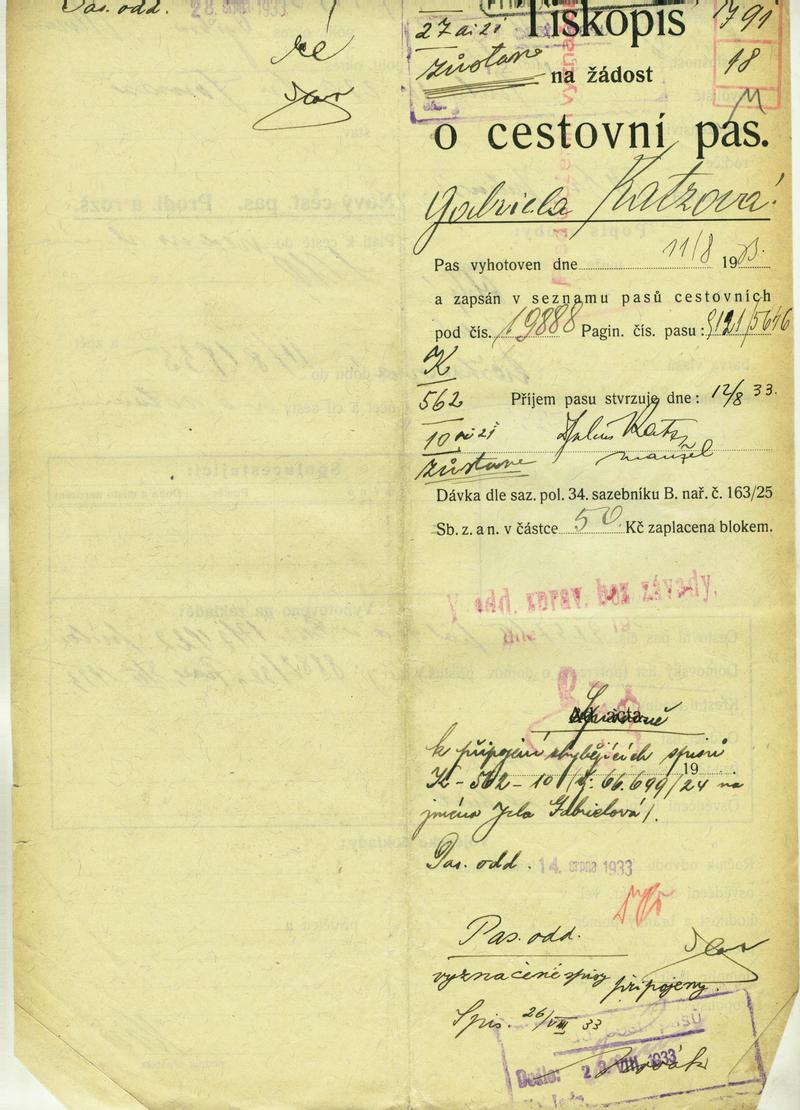 Pas. odd. 28. srpna 1933
27 ai 21
zůstane
Tiskopis
1791
18
na žádost
o cestovní pas.
Gabriela Katzová
Pas vyhotoven dne 11/8 1933.
a zapsán v seznamu pasů cestovních
pod čís. 19888 Pagin. čís. pasu: 9121/5646
K
562
Příjem pasu stvrzuje dne: 12/8 33.
10 ai 21
Julius Katz
zůstane
manžel
Dávka dle saz. pol. 34. sazebníku B. nař. č. 163/25
Sb. z. a n. v částce 50 Kč zaplacena blokem.
V odd. zprav. bez závady.
dne 19
Ad acta
Spisovně
k připojení chybějících spisů
19
K - 562 - 10 /čj: 66.699/24 na
jméno Gabrielová/.
Pas. odd. 14. srpna 1933
Pas. odd.
vyznačené spisy připojeny.
Spis. 26/VIII 33
Došlo: 28. VIII. 1933